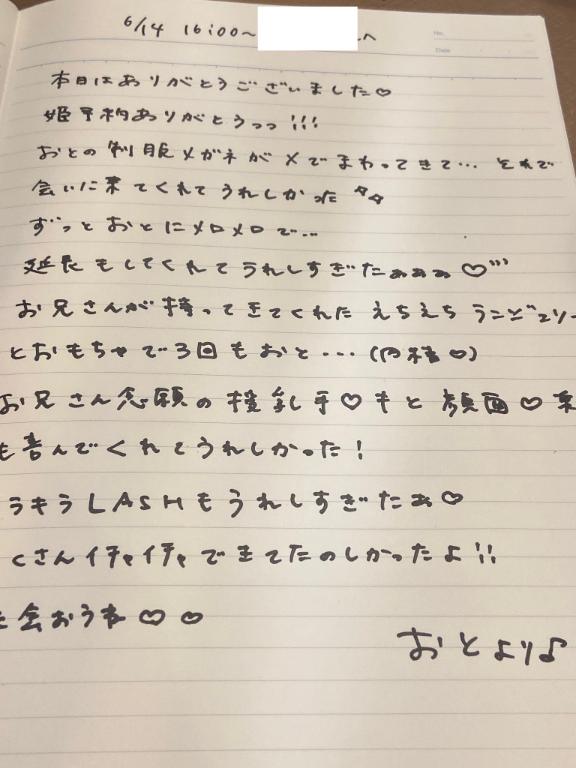 6/14 16:00〜 へ
本日はありがとうございました♡
姫予約ありがとうっっ!!!
おとの制服メガネがXでまわってきて… それで
会いに来てくれてうれしかった
ずーっとおとにメロメロで…
延長もしてくれてうれしすぎたぁぁぁ♡
お兄さんが持ってきてくれたえちえちランジェリー
とおもちゃで3回もおと…(内緒♡)
お兄さん念願の授乳手♡キと顔面♡
も喜んでくれてうれしかった!
ラキラLASHもうれしすぎたぁ♡
くさんイチャイチャできてたのしかったよ!!
た会おうね♡♡
おとより♪